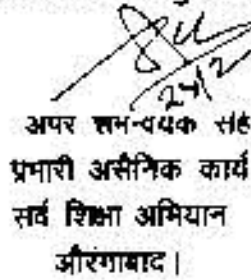 24/2
अपर समन्वयक सह
प्रभारी असैनिक कार्य
सर्व शिक्षा अभियान
औरंगाबाद।